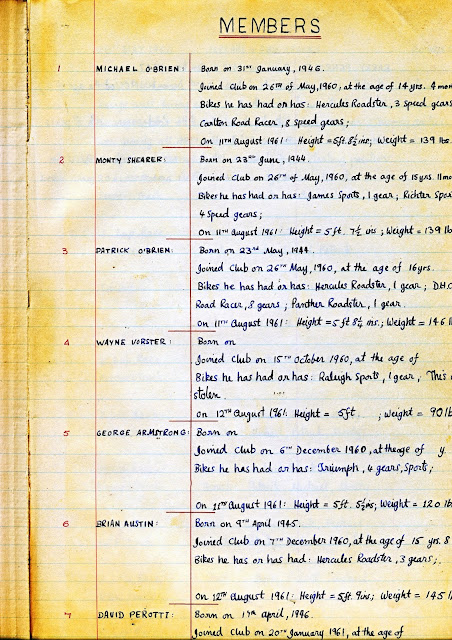 MEMBERS
1 MICHAEL O'BRIEN: Born on 31st January, 1946.
Joined Club on 26TH of May, 1960, at the age of 14 yrs. 4 mon
Bikes he has had or has: Hercules Roadster, 3 speed gears
Carlton Road Racer, 8 speed gears;
On 11TH August 1961: Height = 5ft. 8½ ins; Weight = 139 lbs.
2 MONTY SHEARER: Born on 23rd June, 1944.
Joined Club on 26TH of May, 1960, at the age of 15 yrs. 11 mo
Bikes he has had or has: James Sports, 1 gear; Richter Spo
4 Speed gears;
On 11TH August 1961: Height = 5 ft. 7½ ins; Weight = 139 lb
3 PATRICK O'BRIEN: Born on 23rd May, 1944.
Joined Club on 26TH May, 1960, at the age of 16 yrs.
Bikes he has had or has: Hercules Roadster, 1 gear; D.H.O
Road Racer, 8 gears; Panther Roadster, 1 gear.
On 11TH August 1961: Height = 5 ft 8¼ ins.; Weight = 146 l
4 WAYNE VORSTER: Born on
Joined Club on 15TH October 1960, at the age of
Bikes he has had or has: Raleigh Sports, 1 gear, This
stolen.
On 12TH August 1961: Height = 5ft ; Weight = 90 lb
5 GEORGE ARMSTRONG: Born on
Joined Club on 6TH December 1960, at the age of y.
Bikes he has had or has: Triumph, 4 gears, Sports;
On 11TH August 1961: Height = 5ft. 5½ ins; Weight = 120 lb
6 BRIAN AUSTIN: Born on 9TH April 1945.
Joined Club on 7TH December 1960, at the age of 15 yrs. 8
Bikes he has or has had: Hercules Roadster, 3 gears;
On 12TH August 1961: Height = 5ft. 9 ins; Weight = 145 l
7 DAVID PEROTTI: Born on April, 1946.
Joined Club on 20TH January 1961, at the age of